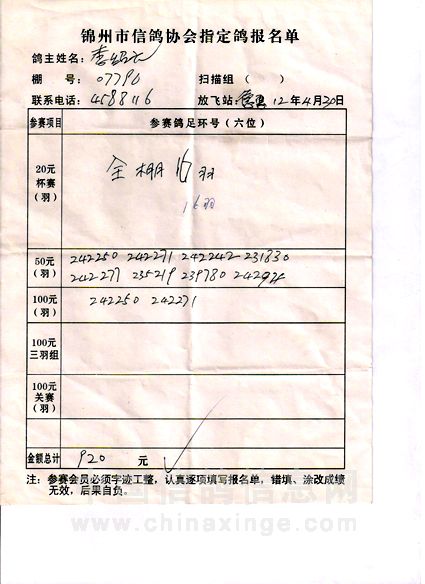 锦州市信鸽协会指定鸽报名单
鸽主姓名：李
棚 号：07796 扫描组（ ）
联系电话：4588116 放飞站： 12年4月30日
参赛项目 参赛鸽足环号（六位）
20元
杯赛
（羽）
全棚16羽
16羽
50元
（羽）
242250 242271 242242 231830
242277 235219 239780 242924
100元
（羽）
242250 242271
100元
三羽组
100元
关赛
（羽）
金额总计 920 元
注：参赛会员必须字迹工整，认真逐项填写报名单，错填、涂改成绩
无效，后果自负。
中国信鸽信息网
www.chinaxinge.com